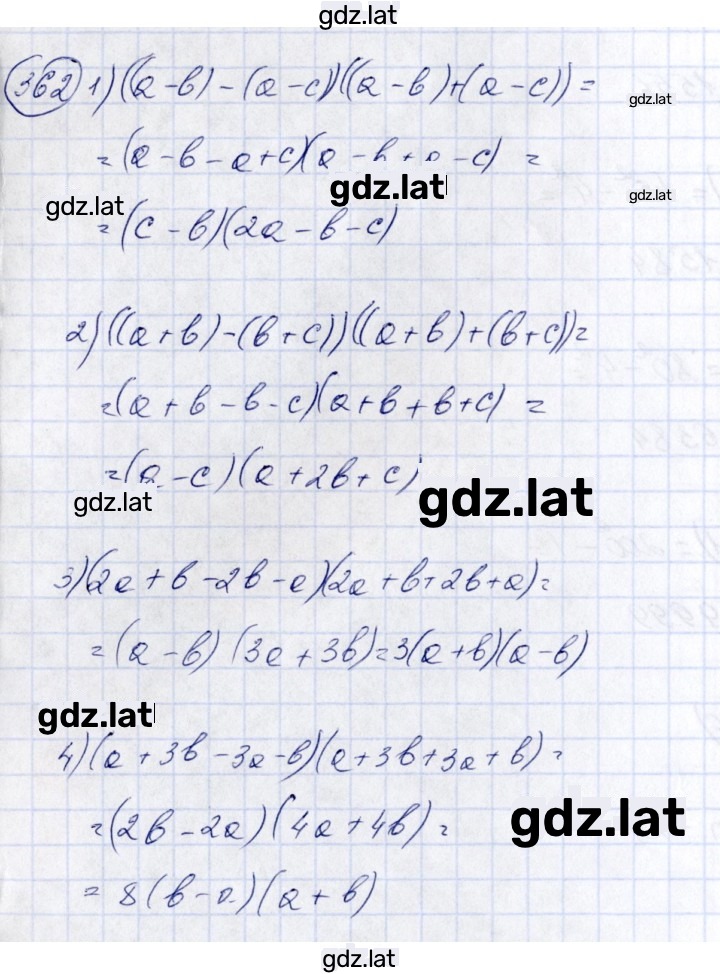 gdz.lat
362 1) ((a-b)-(a-c))((a-b)+(a-c))=
gdz.lat
=(a-b-a+c)(a-b+a-c) =
gdz.lat
gdz.lat
gdz.lat
=(c-b)(2a-b-c)
2) ((a+b)-(b+c))((a+b)+(b+c))=
=(a+b-b-c)(a+b+b+c) =
=(a-c)(a+2b+c)
gdz.lat
gdz.lat
3) (2a+b-2b-a)(2a+b+2b+a)=
=(a-b)(3a+3b)=3(a+b)(a-b)
gdz.lat
4) (a+3b-3a-b)(a+3b+3a+b)=
=(2b-2a)(4a+4b)=
gdz.lat
=8(b-a)(a+b)
gdz.lat